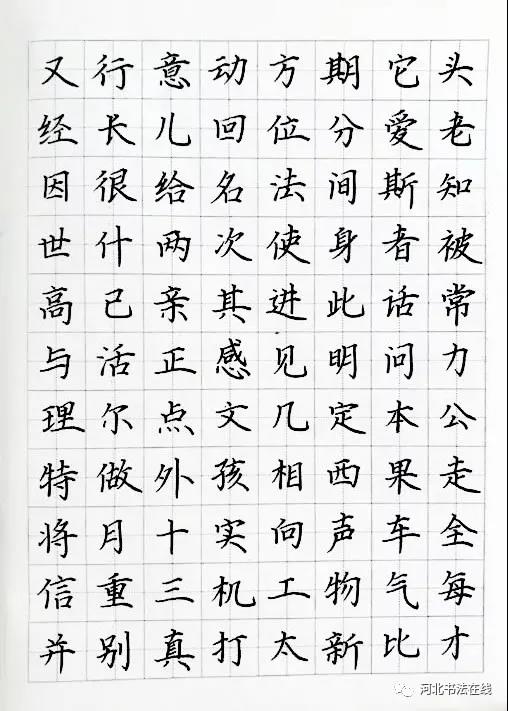 又行意动方期它头
经长儿回位分爱老
因很给名法间斯知
世什两次使身者被
高已亲其进此话常
与活正感见明问力
理尔点文几定本公
特做外孩相西果走
将月十实向声车全
信重三机工物气每
并别真打太新比才
河北书法在线